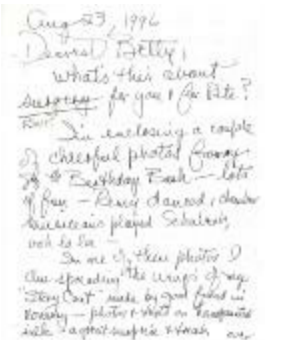 Aug 23, 1996
Dearest Betty,
What's this about
surgery for you & for Pete?
I'm enclosing a couple
of cheerful photos from
Birthday Bash — lots
of fun — danced, chamber
musicians played Schubert,
ooh la la —
In one of these photos I
am spreading the wings of my
"Story Coat" made by good friend in
— photos & text on transparent
silk - a great surprise &
over